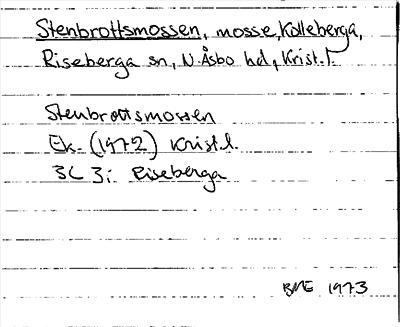 Stenbrottsmossen, mosse, Kolleberga,
Riseberga sn, N. Åsbo hd, Krist. l.
Stenbrottsmossen
Ek. (1972) Krist.l.
3C 3i Riseberga
1973